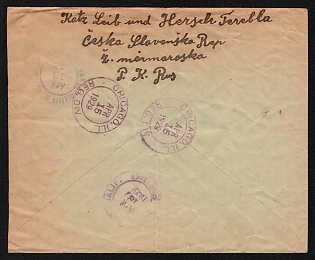 Katz Leib und Hersch Terebla
Česka Slovenska Rep
Ž. mormaroska
P. K. Rus
CHICAGO, ILL.
APR
15
1929
REG. DIV.
CHICAGO, ILL.
APR
15
1929
REG. DIV.
APR
18